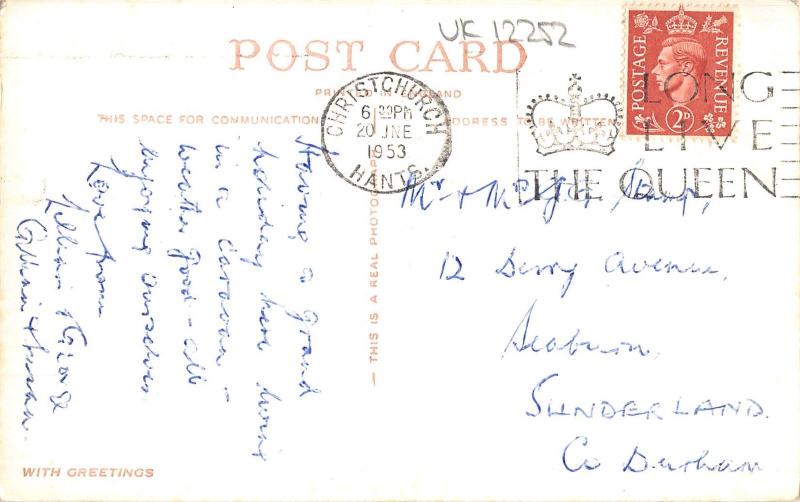 UK 12252
POST CARD
PRINTED IN ENGLAND
THIS SPACE FOR COMMUNICATION
ADDRESS TO BE WRITTEN
CHRISTCHURCH
6 30PM
20 JNE
1953
HANTS.
POSTAGE
REVENUE
2D
LONG
LIVE
THE QUEEN
Having a grand
holiday here living
in a Caravan -
weather good - all
enjoying ourselves
Love from
Lillian &
& Susan.
— THIS IS A REAL PHOTOGRAPH
Mr & Mrs J.G.
12 Derry Avenue,
Seaburn,
SUNDERLAND.
Co Durham
WITH GREETINGS